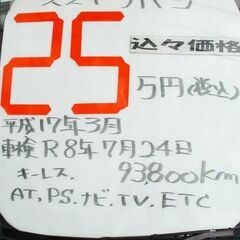 25
込々価格
万円(税込)
平成17年3月
車検 R8年7月24日
キーレス. 93,800km
AT, PS. ナビ, TV. ETC